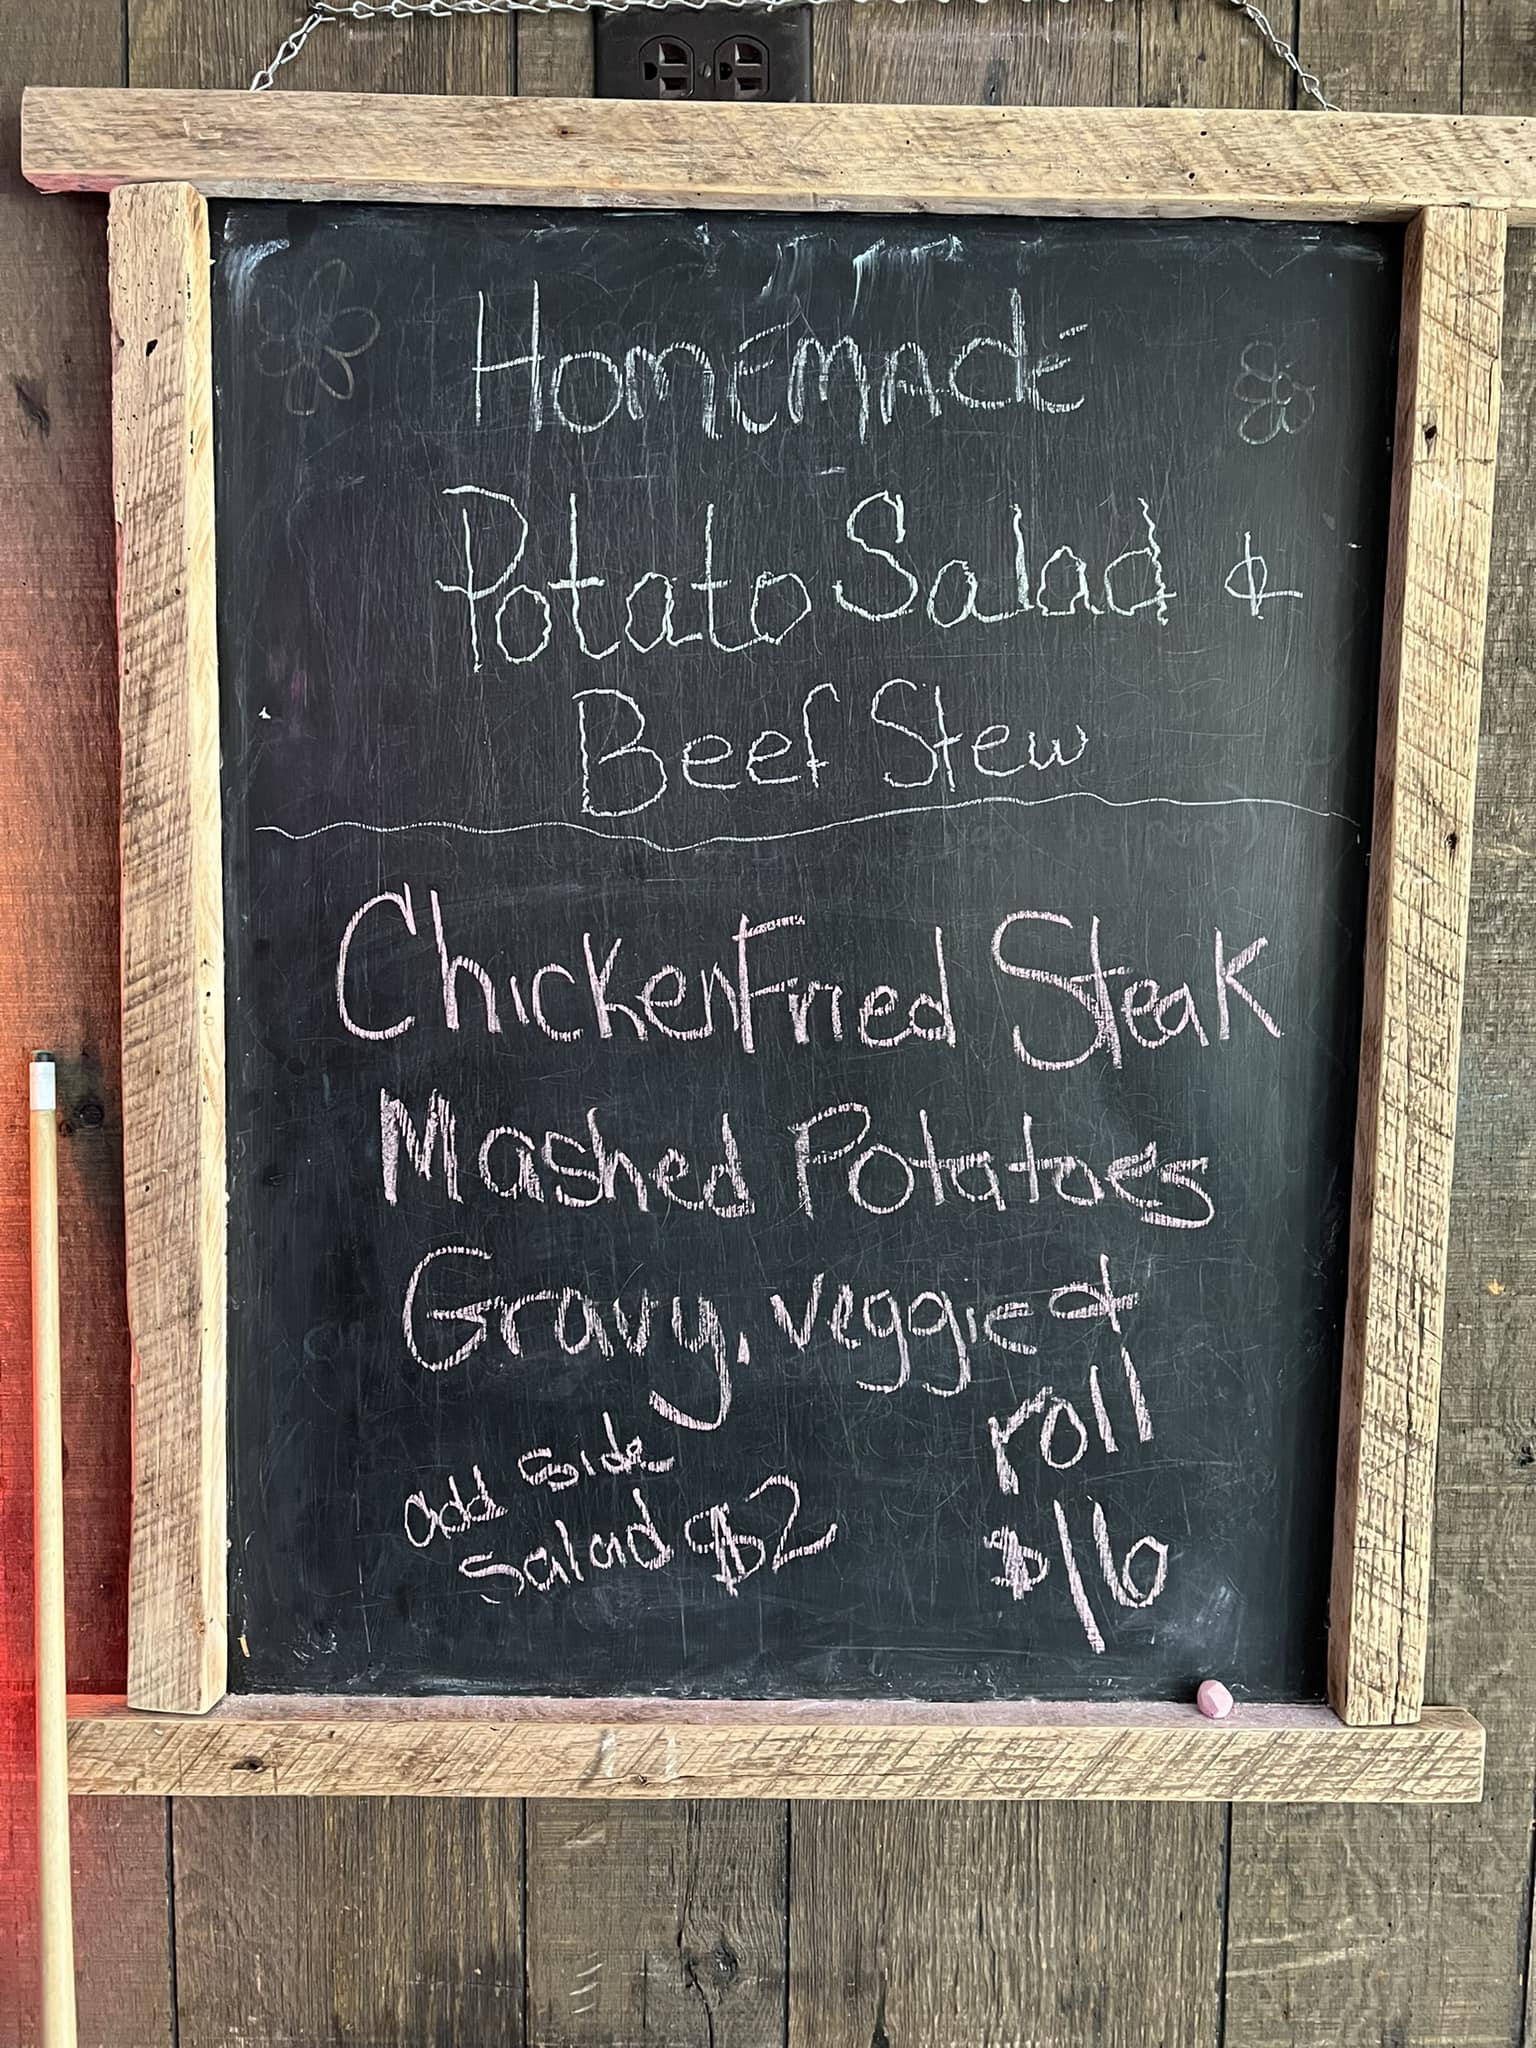 Homemade
Potato Salad &
Beef Stew
Chicken Fried Steak
Mashed Potatoes
Gravy, veggie &
roll
add side
salad $2
$16